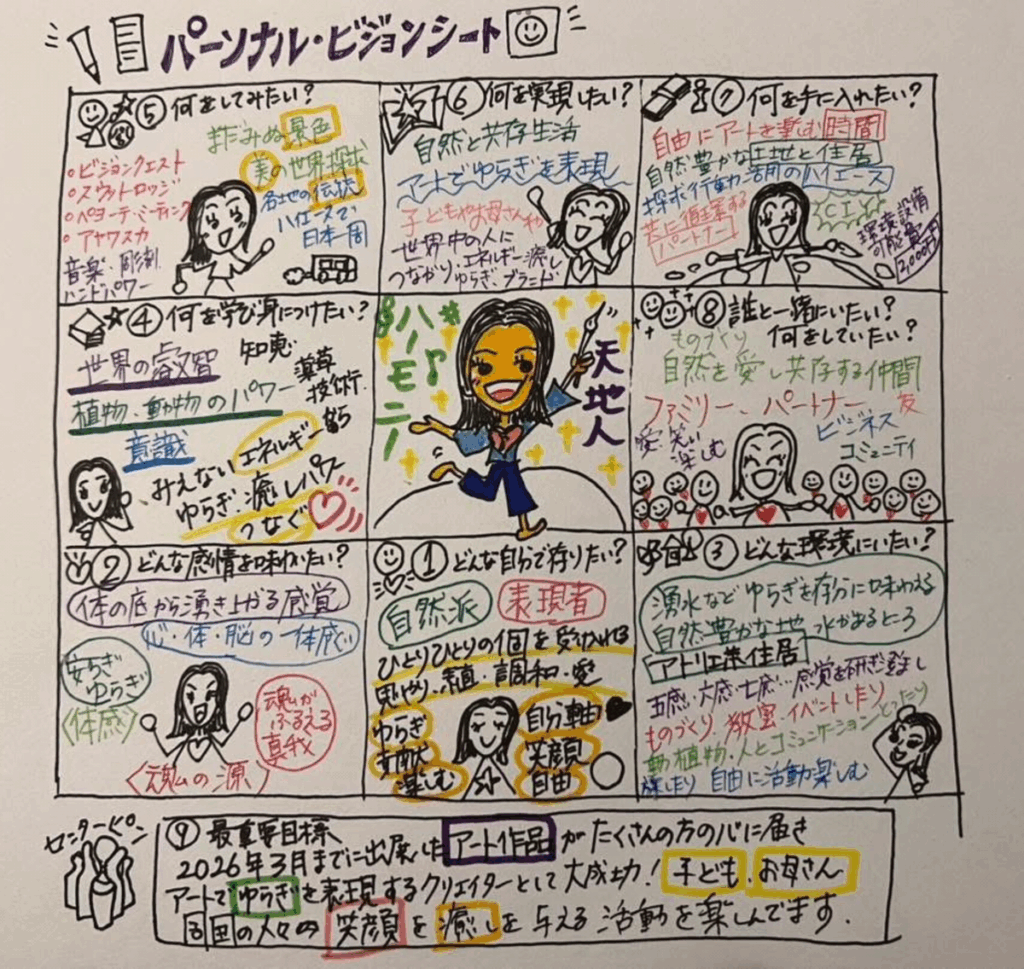 パーソナル・ビジョンシート
⑤ 何をしてみたい?
まだみぬ景色
美の世界探求
各地の伝統
ハイエースで
日本一周
・ビジョンクエスト
・スウェットロッジ
・ペヨーテ・ミーティング
・アヤワスカ
音楽・彫刻
ハンドパワー
⑥ 何を実現したい?
自然と共存生活
アートでゆらぎを表現
子どもやお母さんや
世界中の人に
つながり・エネルギー癒し
ゆらぎ・ブランド
⑦ 何を手に入れたい?
自由にアートを楽しむ時間
自然豊かな土地と住居
探求行動 専用のハイエース
共に循環する
パートナー
CIY
環境設備
可能費
2,000万円
④ 何を学び身につけたい?
世界の叡智
知恵
植物・動物のパワー
薬草
技術
意識
みえないエネルギー
ゆらぎ・癒しパワー
つなぐ
ハーモニー
天地人
⑧ 誰と一緒にいたい?
何をしていたい?
ものづくり
自然を愛し共存する仲間
ファミリー、パートナー 友
愛 笑い
楽しむ
ビジネス
コミュニティ
② どんな感情を味わいたい?
体の底から湧き上がる感覚
心・体・脳の一体感
安らぎ
ゆらぎ
〈体感〉
魂が
ふるえる
真我
〈魂の源〉
① どんな自分で在りたい?
自然派
表現者
ひとりひとりの個を受け入れる
思いやり・素直・調和・愛
ゆらぎ
貢献
楽しむ
自分軸
笑顔
自由
③ どんな環境にいたい?
湧水などゆらぎを存分に味わえる
自然豊かな地 水があるところ
アトリエ兼住居
五感・六感・七感…感覚を研ぎ澄まし
ものづくり、教室・イベントしたり
動植物・人とコミュニケーションとったり
旅したり 自由に活動楽しむ
センターピン
⑨ 最重要目標
2026年3月までに出展したアート作品がたくさんの方の心に届き
アートでゆらぎを表現するクリエイターとして大成功! 子ども、お母さん
各国の人々の笑顔を癒しを与える活動を楽しんでます.